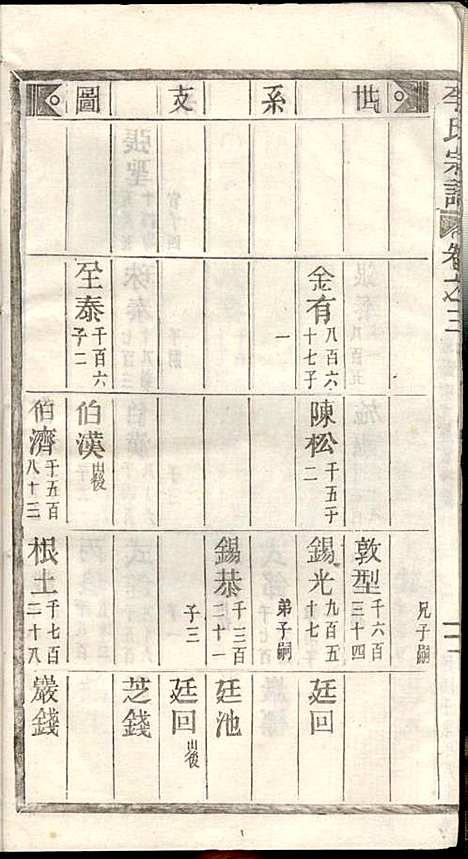 李氏宗譜
卷之三
世系支圖
兄子嗣
敦型 千六百三十四
金有 八百六十七子一
陳松 千五子二
錫光 九百五十七
廷回
弟子嗣
錫恭 千三百二十一
廷池
子三
廷回 出後
芝錢
至泰 千百六子二
伯漢 出後
伯濟 千五百八十三
根土 千七百二十八
嚴錢